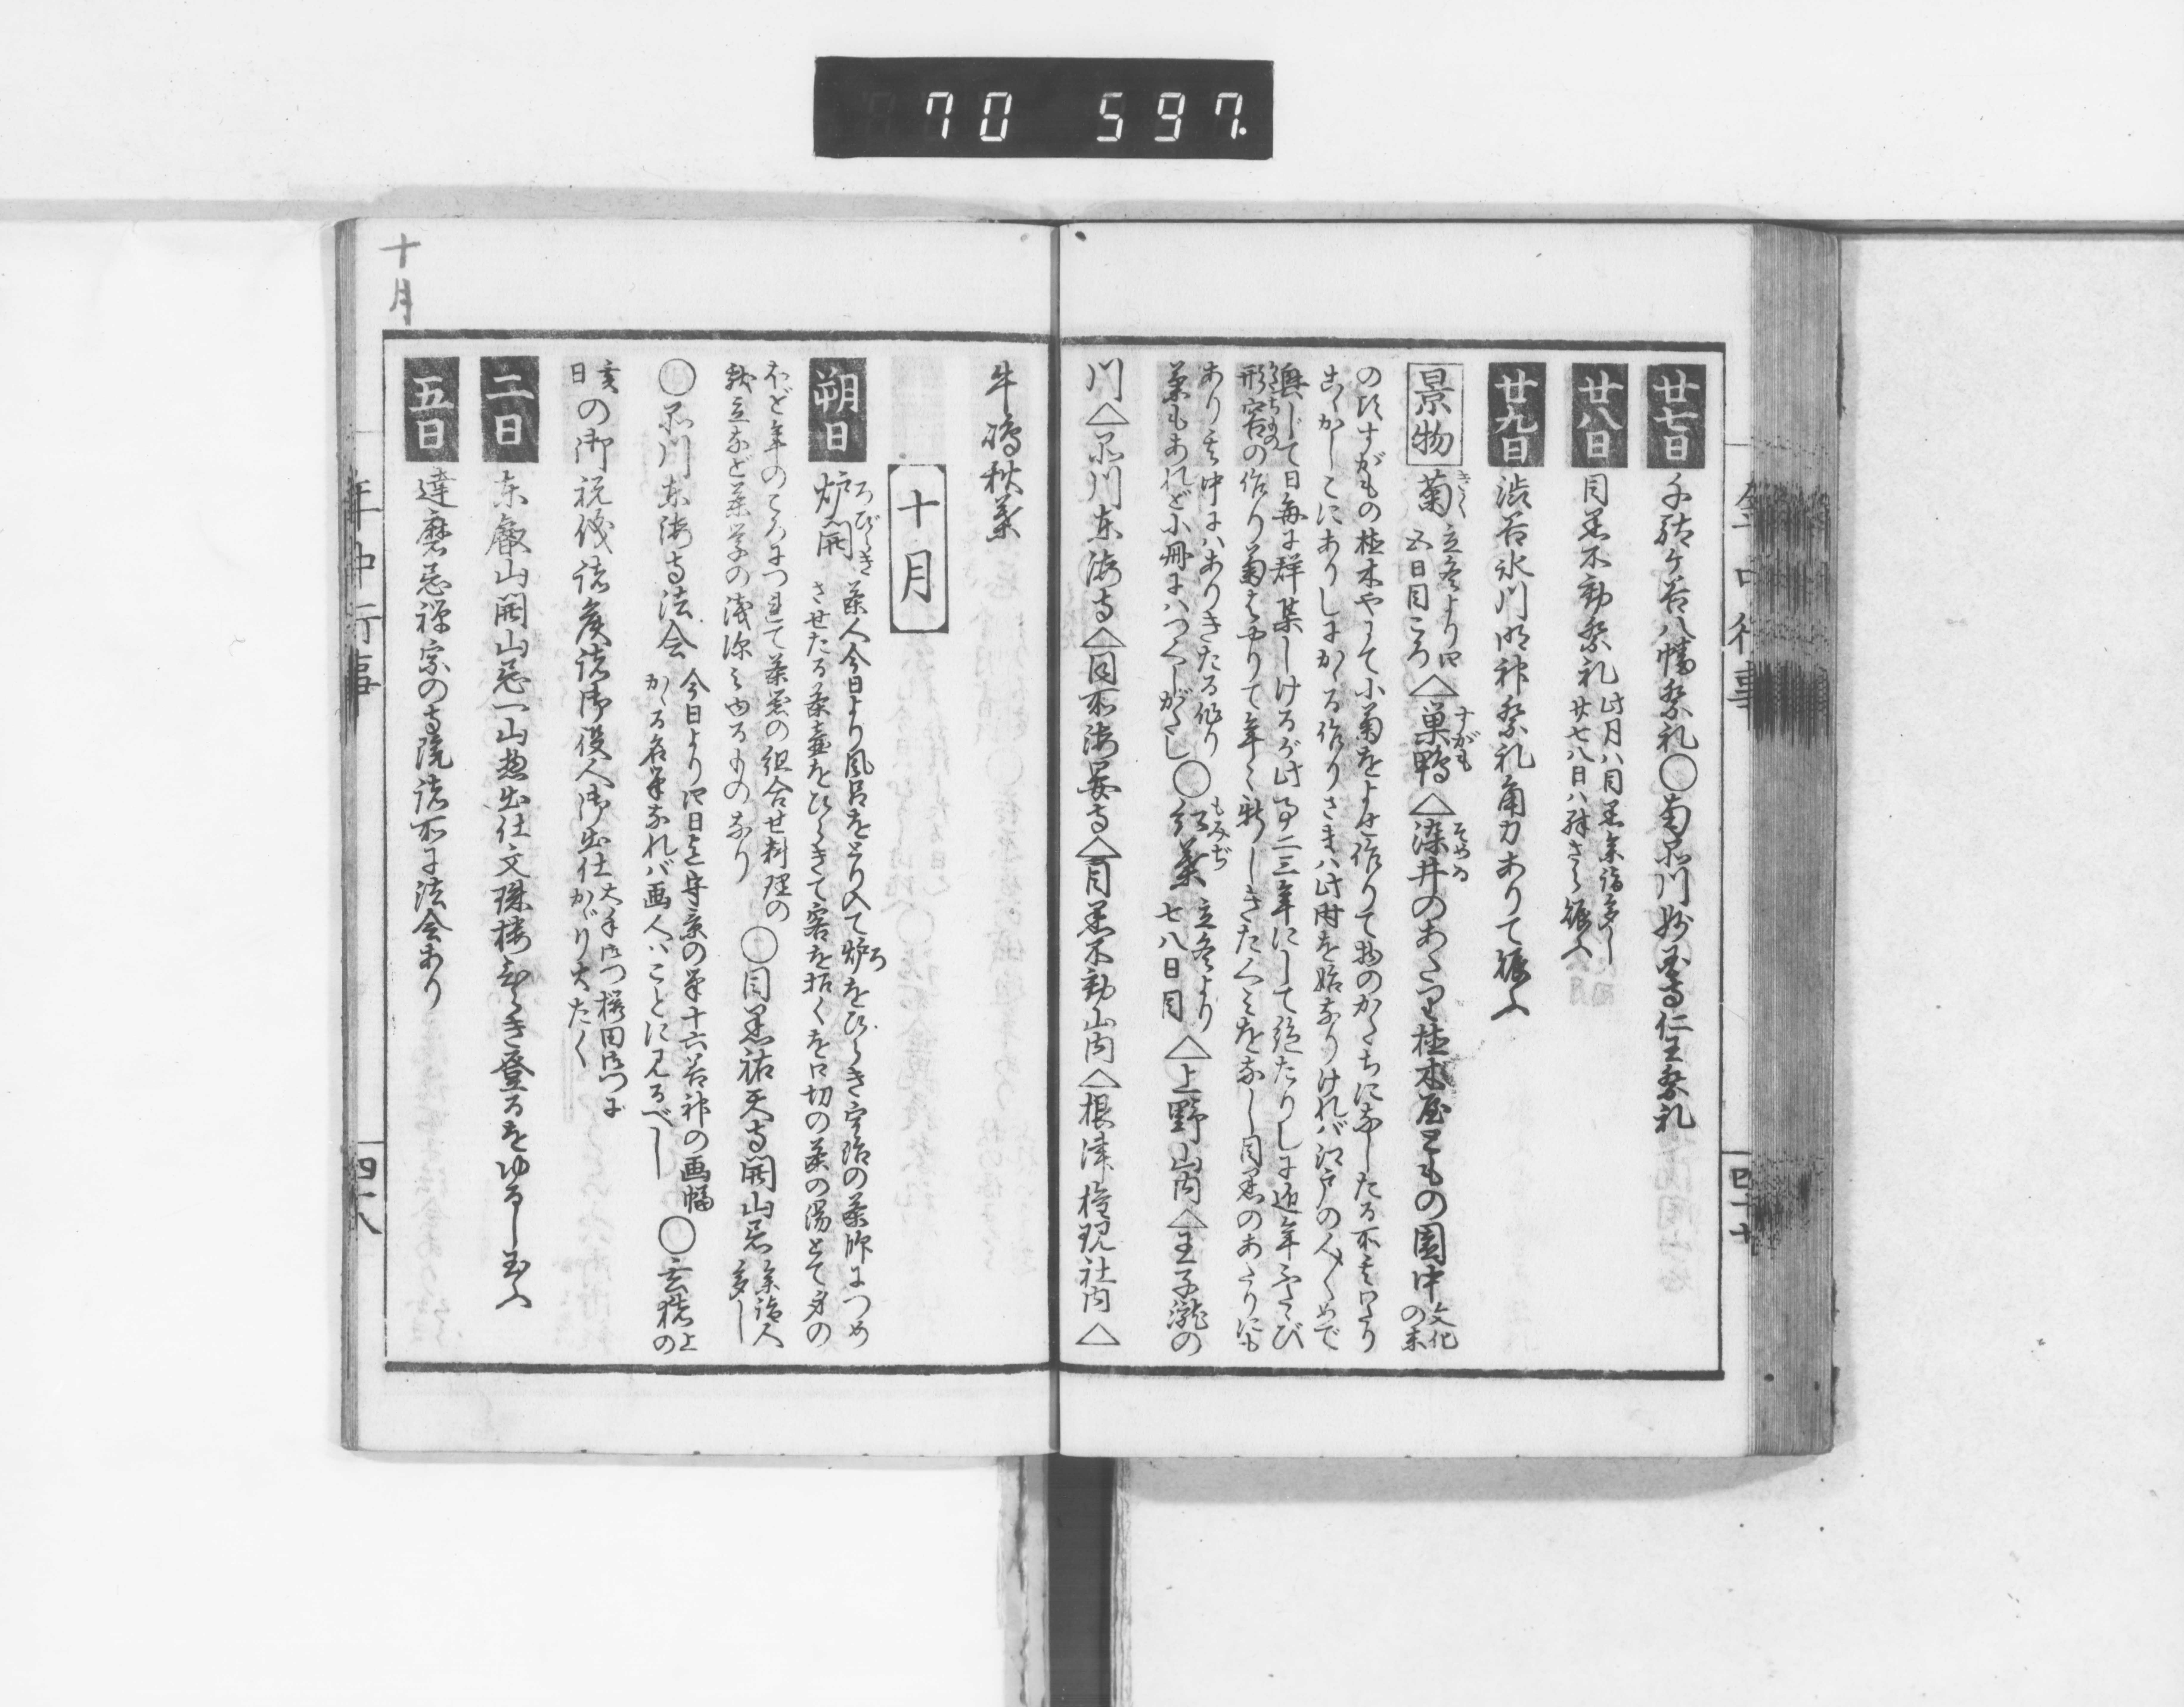 70 597.
廿七日 千駄ケ谷八幡祭礼○南品川妙国寺仁王祭礼
廿八日 目黒不動祭礼
此月ハ目黒参詣多し
廿七八日ハ殊さら賑ふ
廿九日 渋谷氷川明神祭礼角力ありて賑ふ
景物 菊
きく
立冬より四
五日目ころ
△巣鴨△染井のあたり植木屋どもの園中
すがも
そめゐ
文化
の末
のころすがもの植木やにて小菊をよせ作りて物のかたちになしたる所
こゝかしこにありしにかゝる作りさまハ此時を始なりければ江戸の人〳〵めで
興じて日毎に群集しけるが此事二三年にして絶たりしに近年ふたゝび
形容の作り菊はやりて年〻新しきたくミをなし目黒のあたりにも
かたちもの
あり其中にハありきたる作り
菊もあれど小冊にハつくしがたし
○紅葉
もみぢ
立冬より
七八日目
△上野山内△王子瀧の
川△品川東海寺△同所海晏寺△目黒不動山内△根津権現社内△
年中行事
四十七
牛嶋秋葉
十月
朔日 炉開
ろびらき
茶人今日より風呂をとり入て炉をひらき宇治の茶師につめ
ろ
させたる茶壷をひらきて客を招くを口切の茶の湯とて身の
ほど〳〵のこゝろにつれて茶器の組合せ料理の
献立など茶学の浅深ミゆるものなり
○目黒祐天寺開山忌
参詣人
多し
○品川東海寺法会
今日より四日迄守景の筆十六善神の画幅
かゝる名筆なれバ画人ハことに見るべし
○玄猪
上
の
亥
日
の御祝儀諸侯諸御役人御出仕
大手御門桜田御門に
かゞり火たく
二日 東叡山開山忌一山惣出仕文珠楼をひらき登るをゆるし玉ふ
五日 達磨忌禅宗の寺院諸所に法会あり
年中行事
四十八
十月